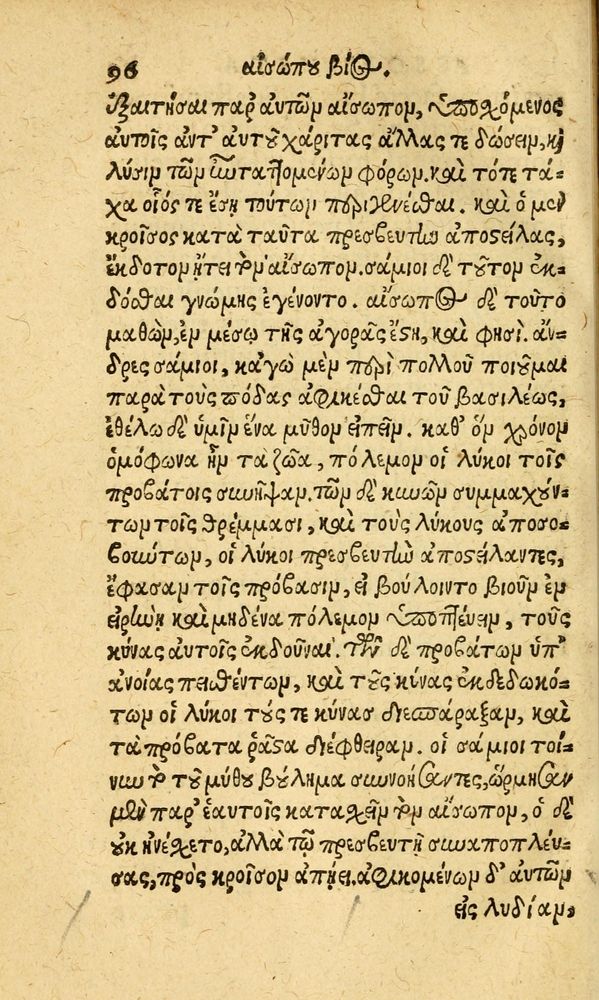 96 αἰσώπου βίος.
ἐξαιτῆσαι παρ' αὐτῶν αἴσωπον, ὑποσχόμενος
αὐτοῖς ἀντ' αὐτοῦ χάριτας ἄλλας τε δώσειν, καὶ
λύσιν τῶν ἐπιταττομένων φόρων. καὶ τότε τά-
χα οἷός τε ἔσῃ τούτων περιγενέσθαι. καὶ ὁ μὲν
κροῖσος κατὰ ταῦτα πρεσβευτὴν ἀποστείλας,
ἔκδοτον ᾔτει τὸν αἴσωπον. σάμιοι δὲ τοῦτον ἐκ-
δόσθαι γνώμης ἐγένοντο. αἴσωπος δὲ τοῦτο
μαθὼν, ἐν μέσῳ τῆς ἀγορᾶς ἔστη, καὶ φησί. ἄν-
δρες σάμιοι, κἀγὼ μὲν περὶ πολλοῦ ποιοῦμαι
παρὰ τοὺς πόδας ἀφικέσθαι τοῦ βασιλέως,
ἐθέλω δὲ ὑμῖν ἕνα μῦθον εἰπεῖν. καθ' ὃν χρόνον
ὁμόφωνα ἦν τὰ ζῶα, πόλεμον οἱ λύκοι τοῖς
προβάτοις συνῆψαν. τῶν δὲ κυνῶν συμμαχούν-
των τοῖς θρέμμασι, καὶ τοὺς λύκους ἀποσο-
βούντων, οἱ λύκοι πρεσβευτὴν ἀποστείλαντες,
ἔφασαν τοῖς πρόβασιν, εἰ βούλοιντο βιοῦν ἐν
εἰρήνῃ καὶ μηδένα πόλεμον ὑποπτεύειν, τοὺς
κύνας αὐτοῖς ἐκδοῦναι. τῶν δὲ προβάτων ὑπ'
ἀνοίας πεισθέντων, καὶ τοὺς κύνας ἐκδεδωκό-
των οἱ λύκοι τούς τε κύνας διεσπάραξαν, καὶ
τὰ πρόβατα ῥᾷστα διέφθειραν. οἱ σάμιοι τοί-
νυν τὸ τοῦ μύθου βούλημα συννοήσαντες, ὥρμησαν
μὲν παρ' ἑαυτοῖς κατασχεῖν τὸν αἴσωπον, ὁ δὲ
οὐκ ἠνέσχετο, ἀλλὰ τῷ πρεσβευτῇ συναποπλεύ-
σας, πρὸς κροῖσον ἀπῄει. ἀφικομένων δ' αὐτῶν
εἰς λυδίαν,